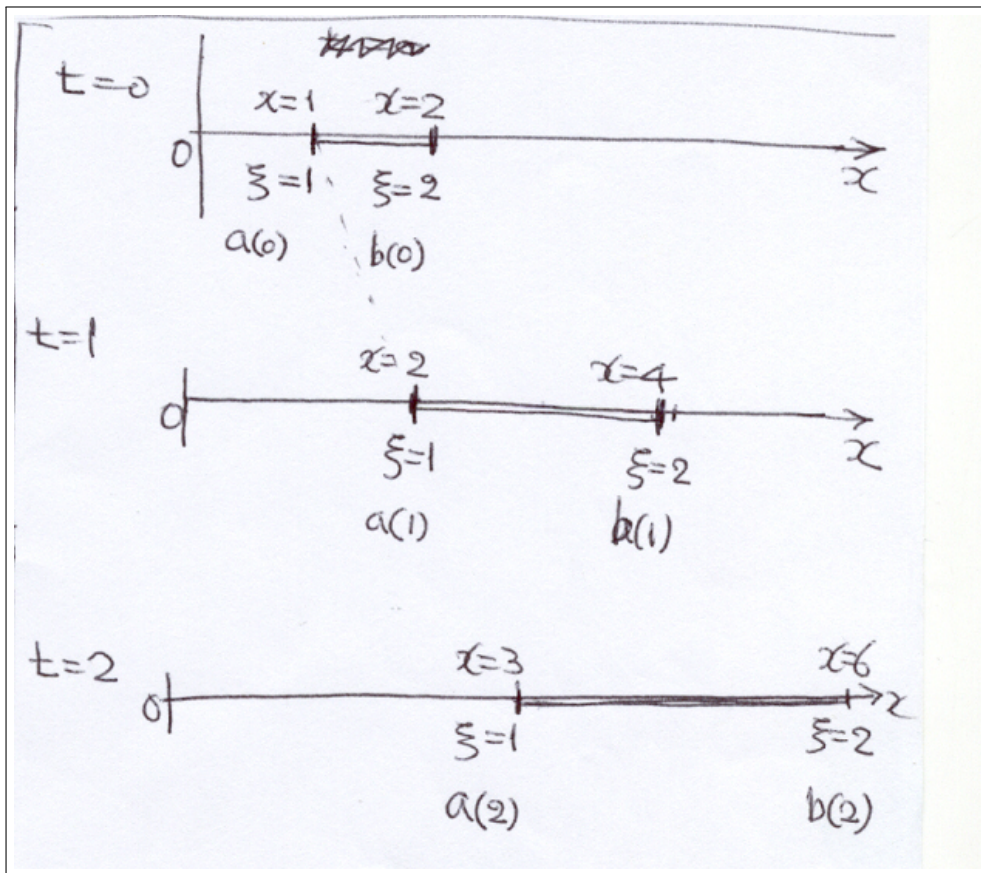 t=0
x=1 x=2
0 x
ξ=1 ξ=2
a(0) b(0)
t=1
x=2 x=4
0 x
ξ=1 ξ=2
a(1) b(1)
t=2
x=3 x=6
0 x
ξ=1 ξ=2
a(2) b(2)